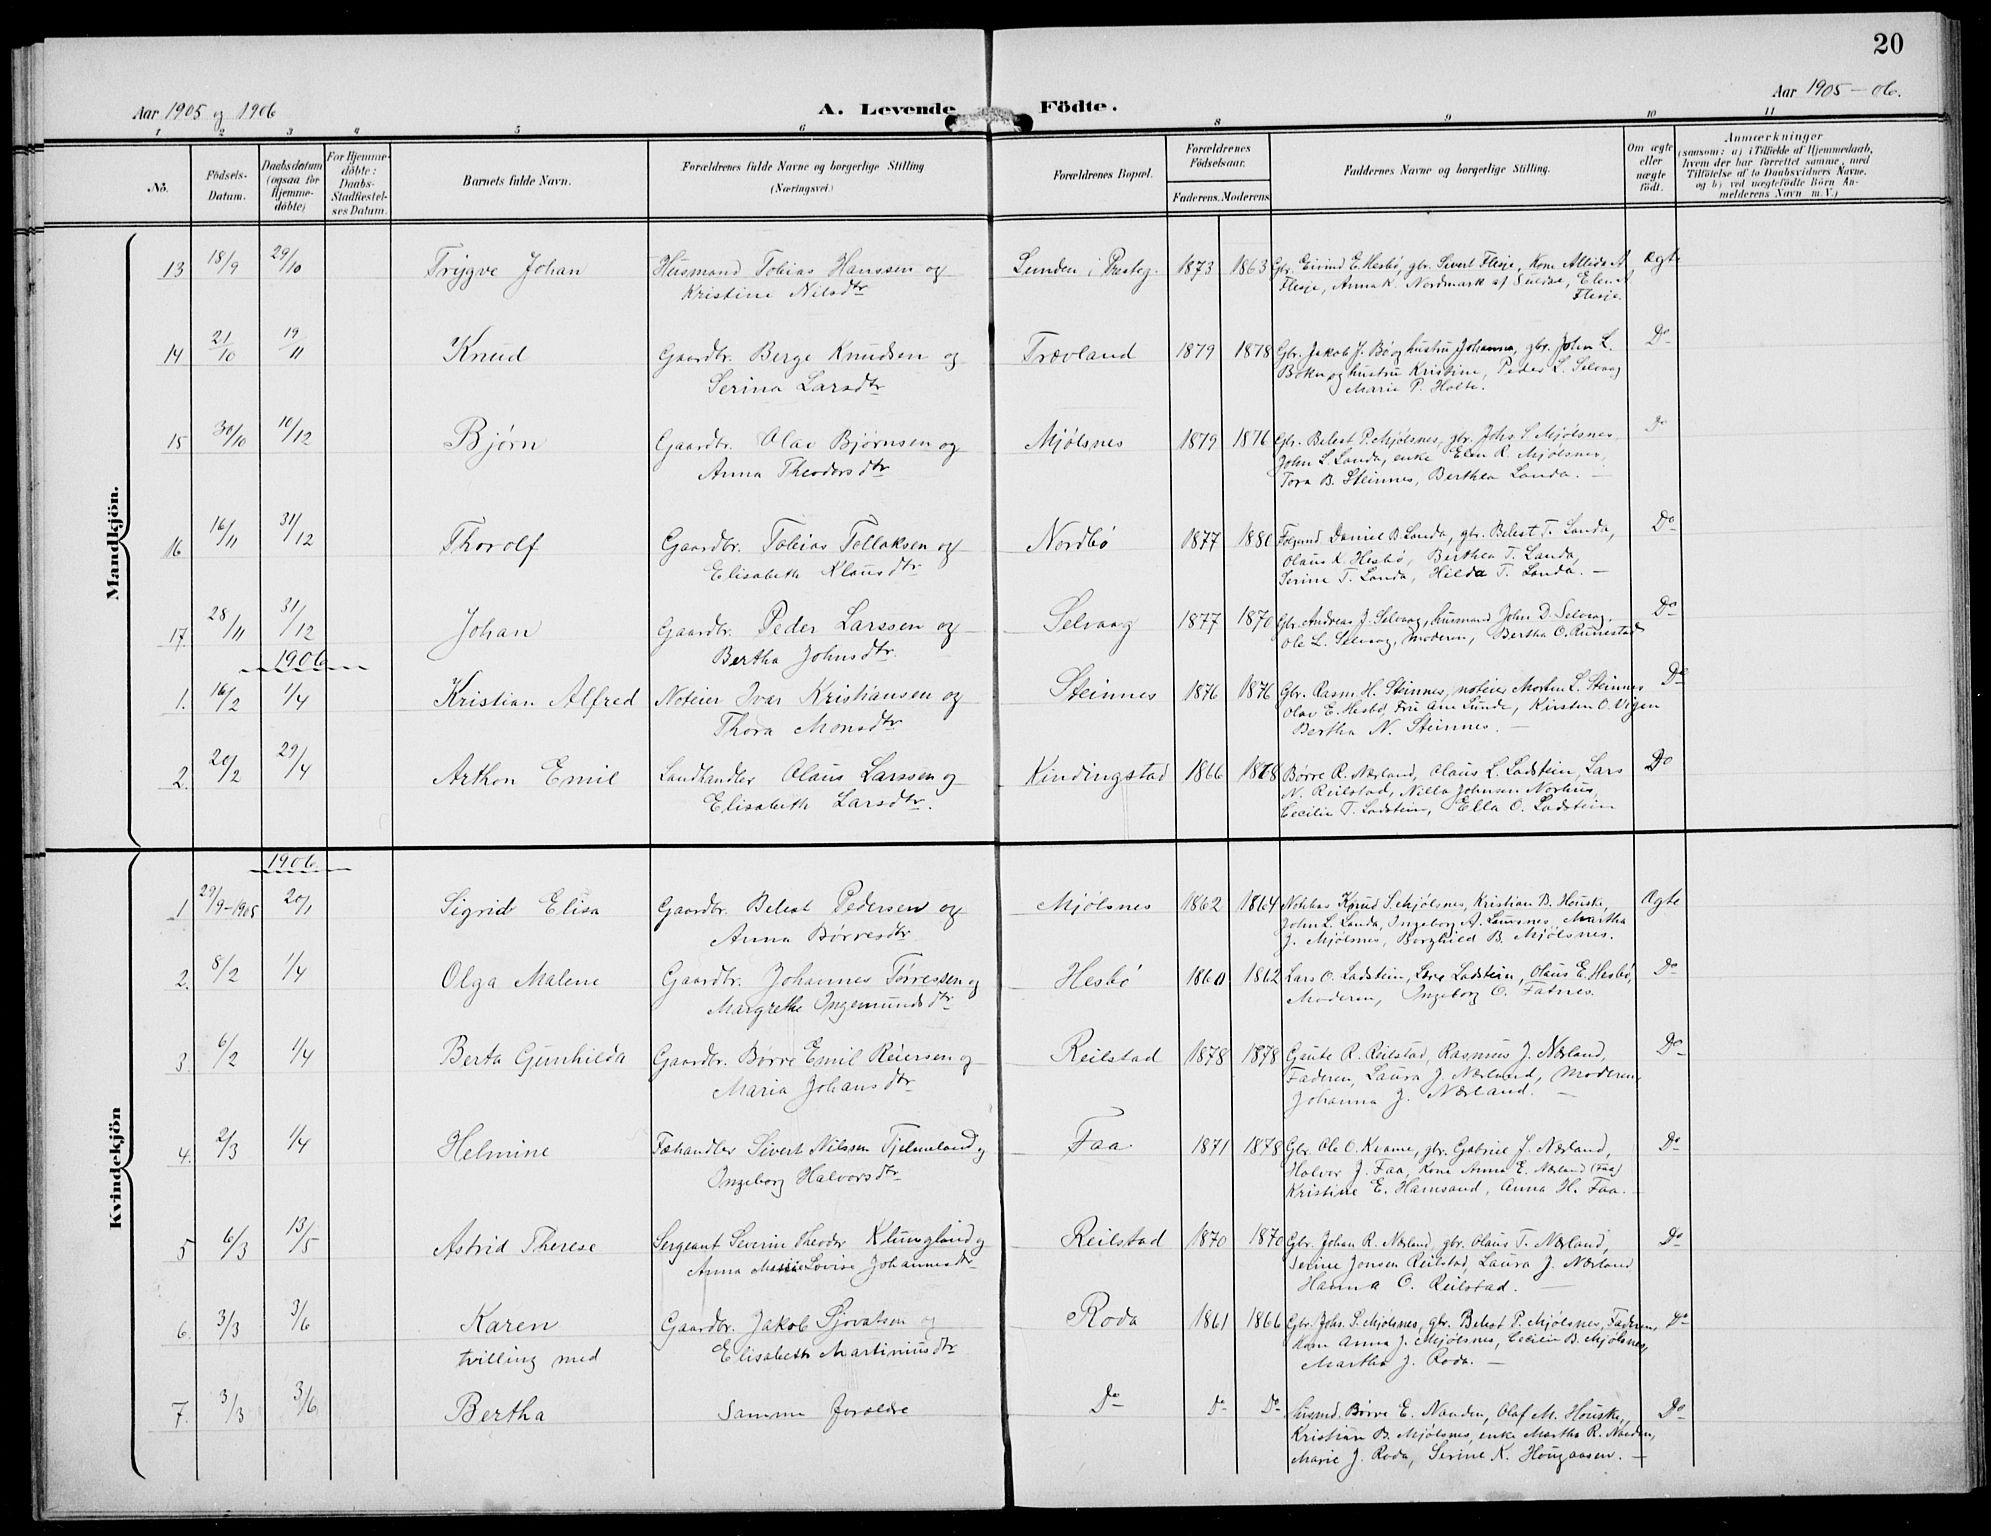 20
Aar 1905 og 1906
A. Levende Födte.
Aar 1905 - 06.
1 2 3 4 5 6 8 9 10 11
No.
Födsels-Datum.
Daabsdatum (ogsaa for Hjemme-döbte)
For Hjemme-döbte: Daabs-Stadfæstel-ses Datum.
Barnets fulde Navn.
Forældrenes fulde Navne og borgerlige Stilling (Næringsvei.)
Forældrenes Bopæl.
Forældrenes Födselsaar.
Faderens. Moderens.
Faddernes Navne og borgerlige Stilling.
Om ægte eller uægte födt.
Anmærkninger
(saasom: a) i Tilfælde af Hjemmedaab,
hvem der har forrettet samme, med
Tilföielse af to Daabsvidners Navne.
og b) ved uægtefödte Börn An-
melderens Navn m. V.)
Mandkjön.
13 18/9 29/10 Trygve Johan Husmand Tobias Hanssen og Lunden i Presteg. 1873 1863 Gbr. Eivind E. Hesbø, gbr. Sivert Flesje, Kone Ægte
Kristine Nilsdtr Flesje, Anna K. Nordmark af Suldal, Elen A
Flesje
14 21/10 19/11 Knud Gaardbr. Berge Knudsen og Trævland 1879 1878 Gbr. Jakob J. Bø og hustru Johanna, gbr. John L. Do
Serina Larsdtr Bokn og hustru Kristine, Peder L. Selvaag
Marie P. Holte.
15 30/10 10/12 Bjørn Gaardbr. Olav Bjørnsen og Mjølsnes 1879 1876 Gbr. Belest P. Mjølsnes, gbr. Johs S. Mjølsnes, Do
Anna Theodorsdtr John L. Landa, enke Elen R. Mjølsnes,
Tora B. Steinnes, Berthea Landa. -
16 16/11 31/12 Thorolf Gaardbr. Tobias Tollaksen og Nordbø 1877 1880 Daniel B. Landa, gbr. Belest T. Landa, Do
Elisabeth Klausdtr Olaus K. Hesbø, Berthea T. Landa,
Serine T. Landa, Hilda T. Landa. -
17. 28/11 31/12 Johan Gaardbr. Peder Larssen og Selvaag 1877 1870 Gbr. Andreas J. Selvaag, husmand John D. Selvaag. Do
Bertha Johnsdtr. Ole L. Selvaag, Moderen, Bertha O. Runestad
1906
1. 16/2 1/4 Kristian Alfred Noteier Ivar Kristiansen og Steinnes 1876 1876 Gbr. Rasm H. Steinnes, noteier Morten L. Steinnes Do
Thora Monsdtr Olav E. Hesbø, Fru Ane Lunde, Kirsten O. Vigen
Bertha N. Steinnes. -
2. 20/2 29/4 Arthon Emil Landhandler Olaus Larssen og Kindingstad 1866 1878 Børre R. Nærland, Olaus L. Ladstein, Lars Do
Elisabeth Larsdtr. N. Reilstad, Nilla Johnsen Norhus,
Cecilie T. Ladstein, Ella O. Ladstein
Kvindekjön
1906
1 29/9-1905 20/1 Sigrid Elisa Gaardbr. Belest Pedersen og Mjølsnes 1862 1864 Knud S. Mjølsnes, Kristian B. Houske, Ægte
Anna Børresdtr. John L. Landa, Ingeborg A. Lausnes, Martha
J. Mjølsnes, Borghild B. Mjølsnes.
2. 8/2 1/4 Olga Malene Gaardbr. Johannes Tørressen og Hesbø 1860 1862 Lars O. Ladstein, Ladstein, Olaus E. Hesbø, Do
Margrethe Ingemundsdtr Moderen, Ingeborg O. Fatnes.
3. 6/2 1/4 Berta Gunhilda Gaardbr. Børre Emil Reiersen og Reilstad 1878 1878 Gaute R. Reilstad, Rasmus J. Nærland, Do
Maria Johansdtr Faderen, Laura J. Nærland, Moderen,
Johanna J. Nærland. -
4. 2/3 1/4 Helmine Fæhandler Sivert Nilssen Tjelmeland og Faa 1871 1878 Gbr. Ole O. Kvame, gbr. Gabriel J. Nærland, Do
Ingeborg Halvorsdtr Halvor J. Faa, Kone Anna E. Nærland (Faa)
Kristine E. Hamsand, Anna H. Faa. -
5 6/3 13/5 Astrid Therese Sergeant Severin Theodor Klungland og Reilstad 1870 1870 Gbr. Johan R. Nærland, gbr. Olaus T. Nærland, Do
Anna Lovise Johannesdtr Serine Jonsen Reilstad, Laura J. Nærland
Hanna O. Reilstad. -
6. 3/3 3/6 Karen Gaardbr. Jakob Sjovatsen og Roda 1861 1866 Gbr. Johs. S. Mjølsnes, gbr. Belest P. Mjølsnes, Faderen, Do
tvilling med Elisabeth Martiniusdtr Kone Anna J. Mjølsnes, Cecilie B. Mjølsnes,
Martha J. Roda. -
7. 3/3 3/6 Bertha Samme forældre Do Do Do Husmd. Børre E. Nanden, Olaf M. Houske, Do
Kristian B. Mjølsnes, enke Martha R. Nanden,
Marie J. Roda, Serine K. Hougaasen. -